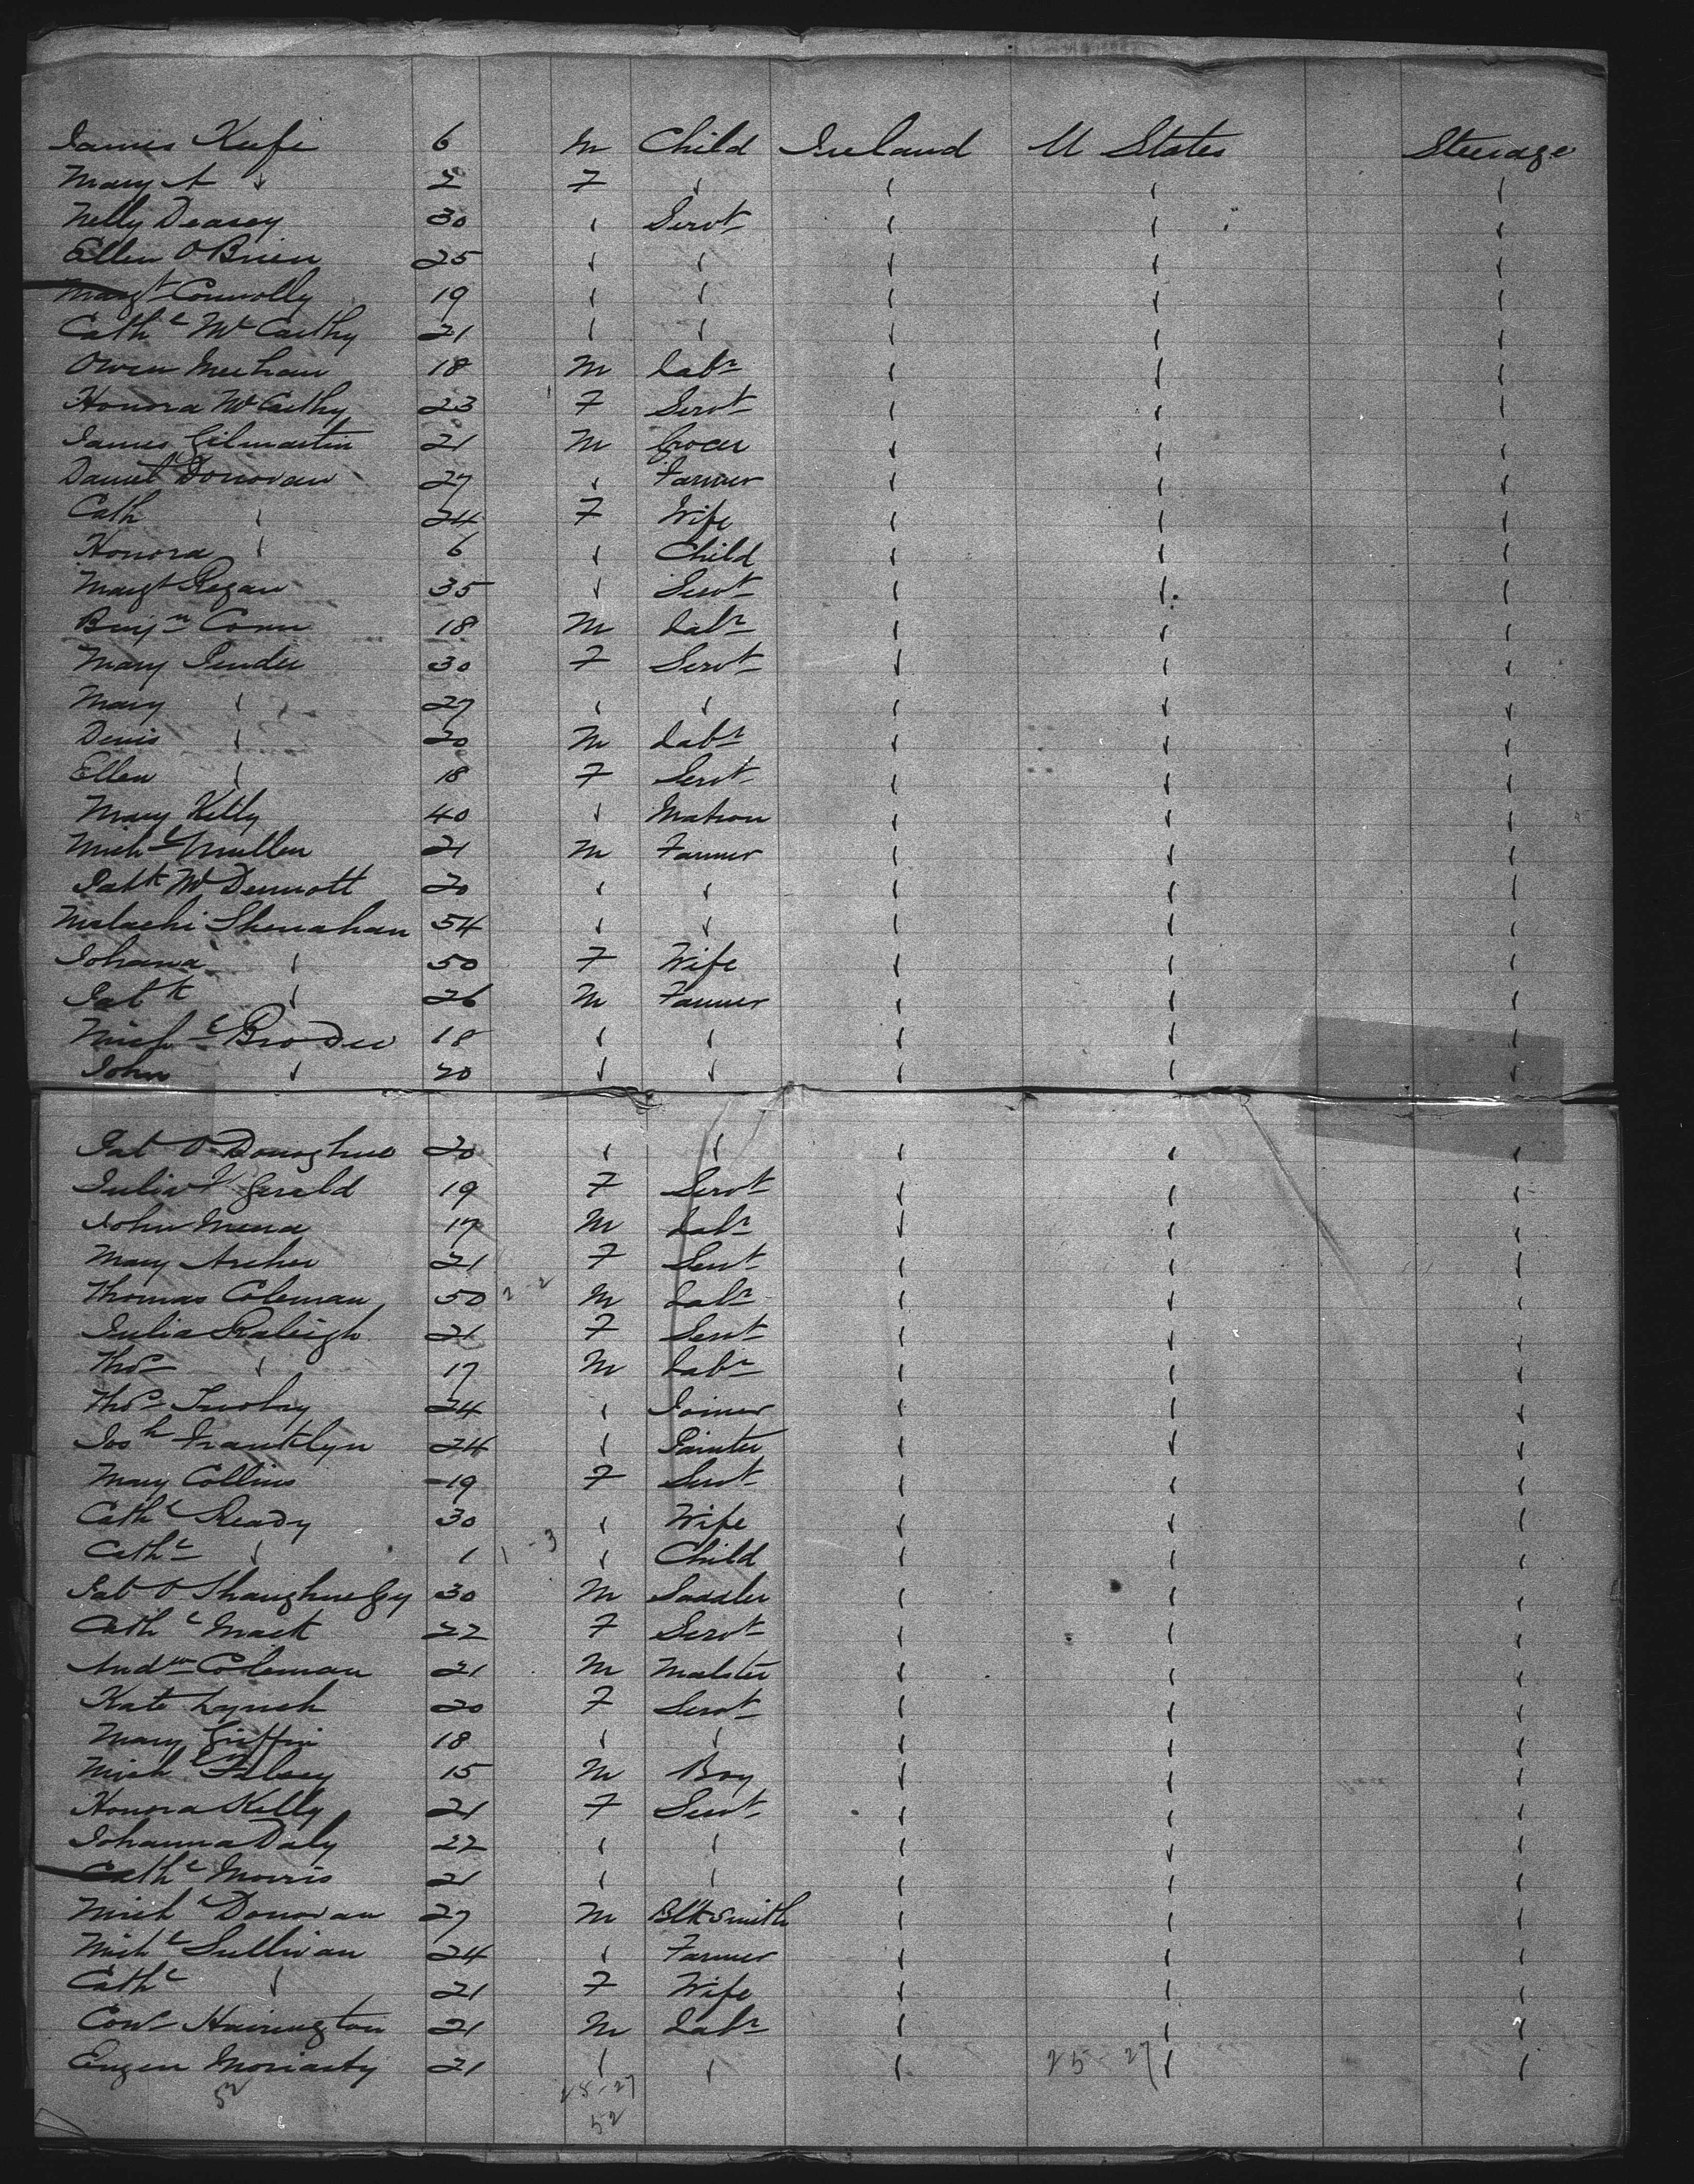 James Keefe 6 M Child Ireland U States Steerage
Mary A " 2 F " " " "
Nelly Deasey 30 " Servt " " "
Ellen O Brien 25 " " " " "
Margt Connolly 19 " " " " "
Cathe Mc Carthy 21 " " " " "
Owen Meehan 18 M Labr " " "
Honora McCarthy 23 F Servt " " "
James Gilmartin 21 M Grocer " " "
Daniel Donovan 27 " Farmer " " "
Cath " 24 F Wife " " "
Honora " 6 " Child " " "
Margt Regan 35 " Servt " " "
Benjn Conn 18 M Labr " " "
Mary Pender 30 F Servt " " "
Mary " 27 " " " " "
Denis " 20 M Labr " " "
Ellen " 18 F Servt " " "
Mary Kelly 40 " Matron " " "
Michl Mullen 21 M Farmer " " "
Patk McDermott 20 " " " " "
Malachi Shenahan 54 " " " " "
Johana " 50 F Wife " " "
Patk " 26 M Farmer " " "
Michl Broder 18 " " " " "
John " 20 " " " " "
Pat O Donoghue 20 " " " " "
Julia F Gerald 19 F Servt " " "
John Meara 17 M Labr " " "
Mary Archer 21 F Servt " " "
Thomas Coleman 50 M Labr " " "
Julia Raleigh 21 F Servt " " "
Thos " 17 M Labr " " "
Thos 24 " Joiner " " "
Josh Franklyn 24 " Painter " " "
Mary Collins 19 F Servt " " "
Cathe Ready 30 " Wife " " "
Cathe " 1 1-3 " Child " " "
Pat O Shaughnessy 30 M Saddler " " "
Cathe Mack 22 F Servt " " "
Andw Coleman 21 M Malster " " "
Kate Lynch 20 F Servt " " "
Mary Griffin 18 " " " " "
Michl Falsey 15 M Boy " " "
Honora Kelly 21 F Servt " " "
Johanna Daly 22 " " " " "
Cathe Morris 21 " " " " "
Michl Donovan 27 M Blksmith " " "
Michl Sullivan 24 " Farmer " " "
Cathe " 21 F Wife " " "
Cons Harrington 21 M Labr " " "
Eugen Moriarty 21 " " " 25-27 " "
52 25-27
52